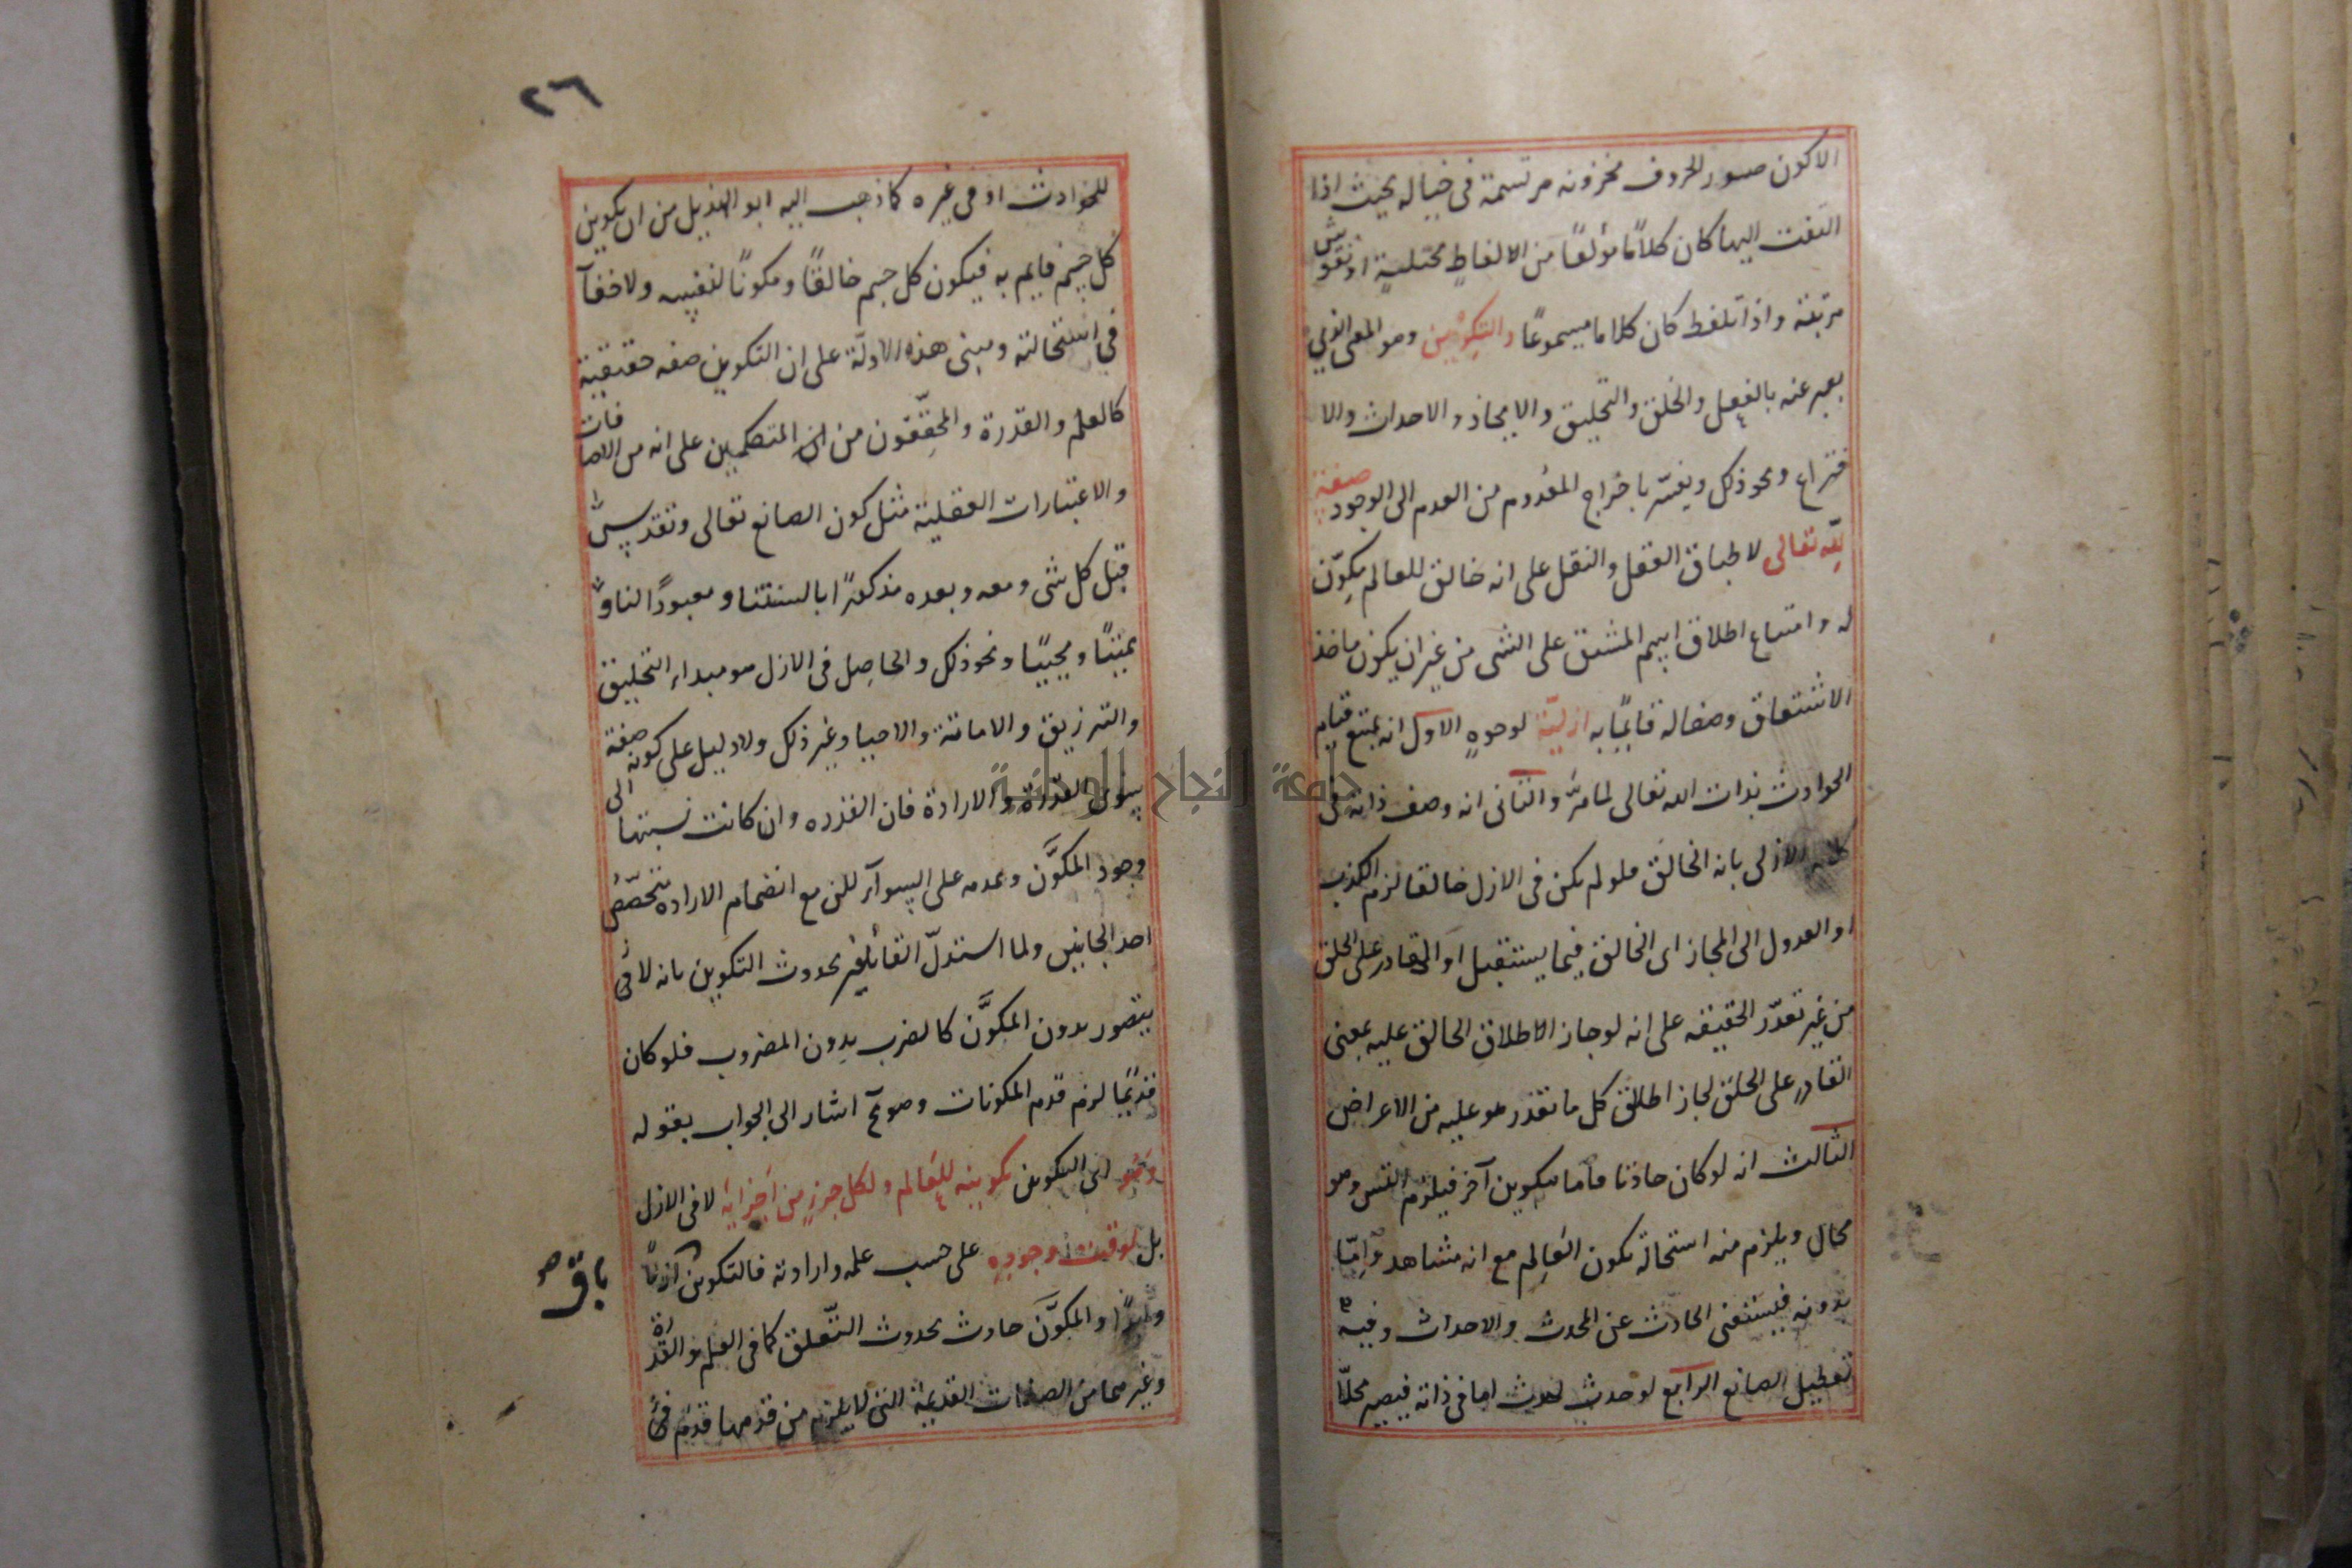 الاكون صور الحروف مخزونه مرتسمة فى خياله بحيث اذا
التفت اليها كان كلامًا مؤلفًا من الالفاظٍ مختليةٍ او نقوش
مرتبة واذا تلفظ كان كلاما مسموعًا والتكوين وهو المعنى الذي
يعبر عنه بالفعل والخلق والتخليق والايجاد والاحداث والا
ختراع ونحو ذلك ويفسّر باخراج المعدوم من العدم الى الوجود صفة
للّه تعالى لاطباق العقل والنقل على انه خالق للعالم مكوّن
له وامتناع اطلاق اسم المشتق على الشى من غير ان يكون ماخذ
الاشتقاق وصفا له قايمًا به ازليّة لوجوهٍ الاول انه يمتنع قيام
الحوادث بذات الله تعالى لما مرّ والثانى انه وصف ذاته فى
كلامه الازلى بانه الخالق فلو لم يكن فى الازل خالقا لزم الكذب
او العدول الى المجاز اى الخالق فيما يستقبل او القادر على الخلق
من غير تعذّر الحقيقه على انه لو جاز الاطلاق الخالق عليه بمعنى
القادر على الخلق لجاز اطلاق كل ما تقدر هو عليه من الاعراض
الثالث انه لو كان حادثا فاما بتكوين آخر فيلزم التس وهو
محال ويلزم منه استحالة تكون العالم مع انه مشاهد واِمّا
بدونه فيستغنى الحادث عن المحدث والاحداث وفيه
تعطيل الصانع الرابع لو حدث لحدث اما فى ذاته فيصير محلّا
٢٦
للحوادث او فى غيره كما ذهب اليه ابو الهذيل من ان تكوين
كل جسم قايم به فيكون كل جسم خالقًا ومكونًا لنفسه ولا خفآ
في استحالته ومبنى هذه الادلّة على ان التكوين صفه حقيقية
كالعلم والقدرة والمحقّقون من المتكلمين على انه من الاضافات
والاعتبارات العقلية مثل كون الصانع تعالى وتقدس
قبل كل شى ومعه وبعده مذكورًا بالسنتنا ومعبودًا لنا و
يميتنًا ويحيينًا ونحو ذلك والحاصِل فى الازل هو مبداء التخليق
والترزيق والاماتة والاحيا وغير ذلك ولا دليل على كونه صفة
سوى القدرة والارادة فان القدره وان كانت نسبتها الى
وجود المكوَّن وعدمه على السوآر للن مع انضمام الاراده يتخصّصُ
احد الجانبين ولما استدلّ القائلون بحدوث التكوين بانه لا
يتصور بدون المكوَّن كالضرب بدون المضروب فلو كان
قديمًا لزم قدم المكونات وهو مح اشار الى الجواب بقوله
وهو اى التكوين تكوينه للعَالم ولكل جزءٍ من اَجزايه لا فى الازل
بل لوقت وجودهِ على حسب علمه وارادته فالتكوين ازلًا
وابدًا والمكوَّن حادث بحدوث التّعلق كما فى العلم والقدرة
وغيرهما من الصفات القديمة التى لا يلزم من قدمها قدم
باق
جامعة النجاح الوطنية